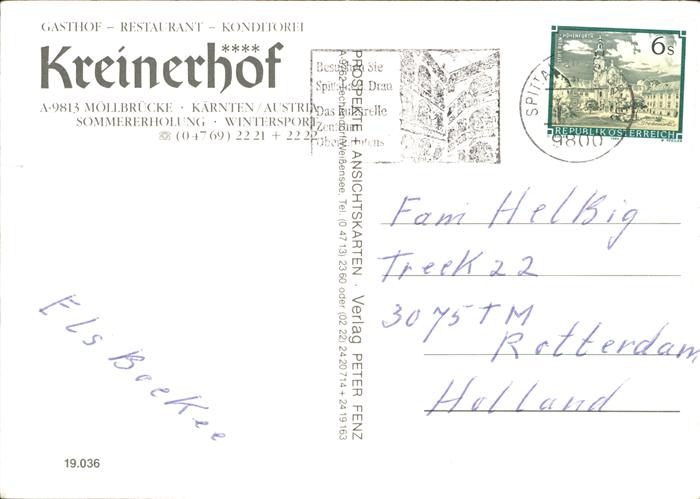 GASTHOF – RESTAURANT – KONDITOREI
Kreinerhof ****
A-9813 MÖLLBRÜCKE · KÄRNTEN/AUSTRIA
SOMMERERHOLUNG · WINTERSPORT
☏ (0 47 69) 22 21 + 22 22
Besuchen Sie
Spittal Drau
Das
Zentrum
Oberkärntens
SPITTAL
9800
6 S
REPUBLIK ÖSTERREICH
PROSPEKTE + ANSICHTSKARTEN · Verlag PETER FENZ
Weißensee, Tel. (0 47 13) 23 60 oder (02 22) 24 20 714 + 24 19 163
Fam HelBig
Treek 22
3075 TM
Rotterdam
Holland
Els BoeKee
19.036